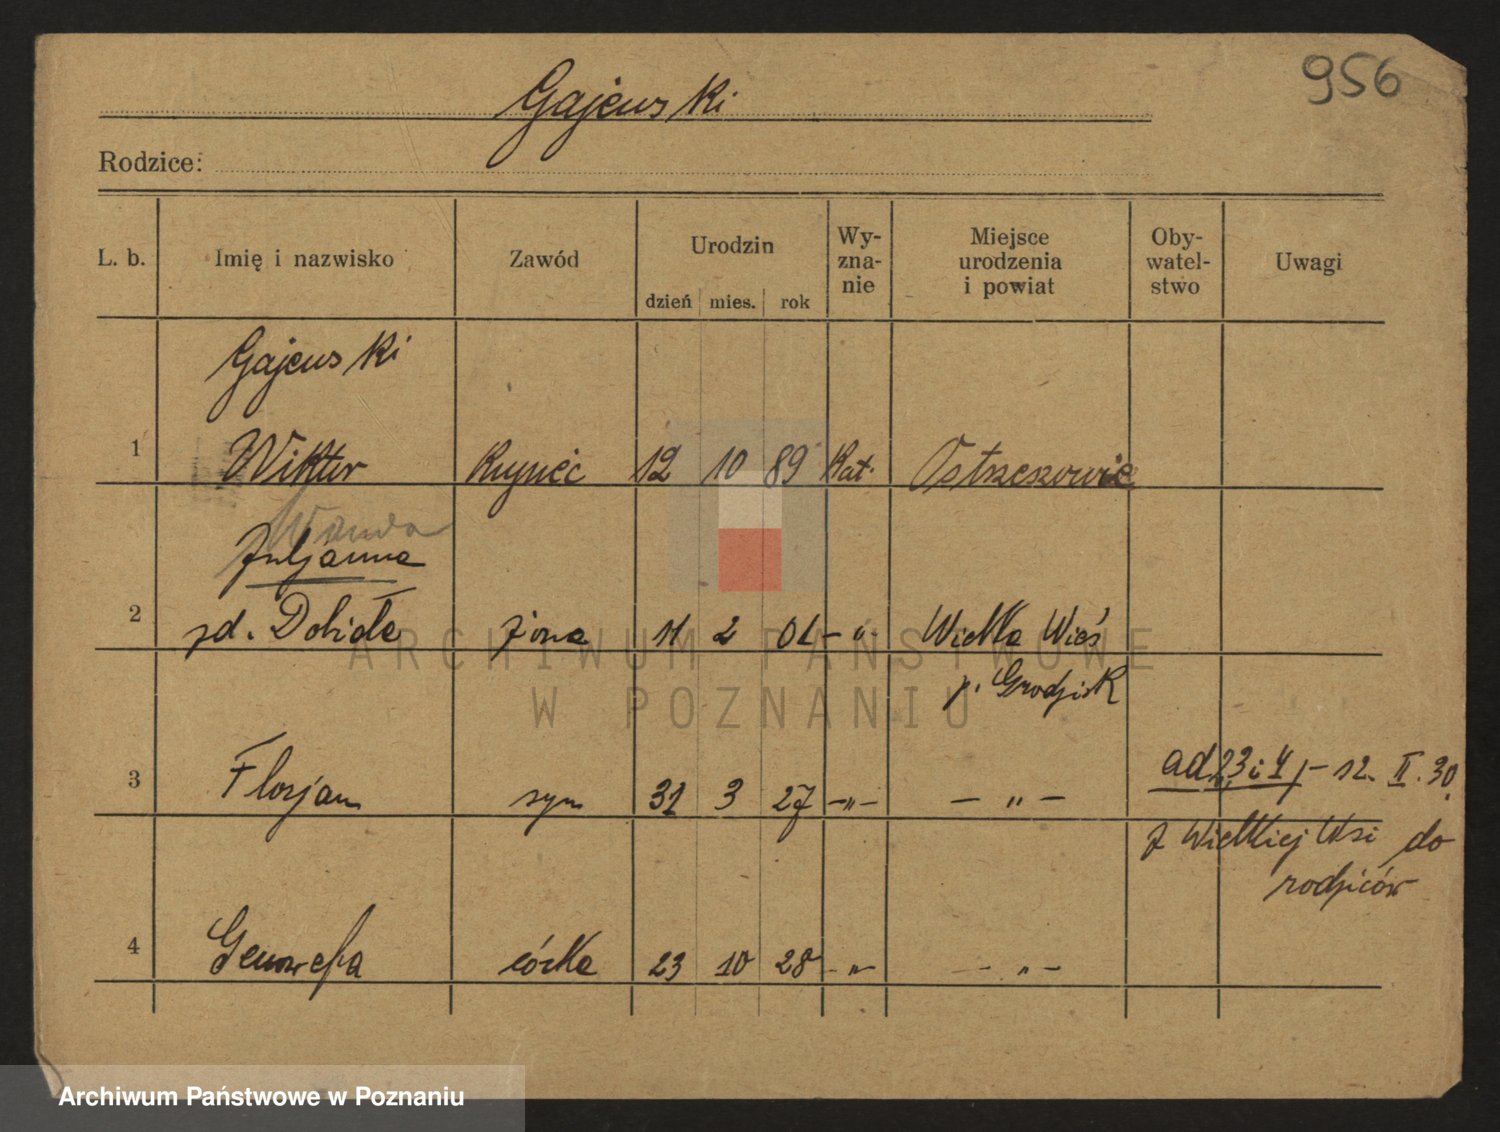 956
Gajewski
Rodzice:
L. b. Imię i nazwisko Zawód Urodzin Wy-zna-nie Miejsce urodzenia i powiat Oby-watel-stwo Uwagi
dzień mies. rok
Gajewski
1 Wiktor Kupiec 12 10 89 Kat. Ostrzeszowie
Wanda
Juljanna
2 zd. Dobida żona 11 2 01 -"- Wielka Wieś
p. Grodzisk
3 Florjan syn 31 3 27 -"- - " - ad 2, 3 i 4 /- 12. II. 30.
z Wielkiej Wsi do
rodziców
4 Genowefa córka 23 10 28 -"- - " -
ARCHIWUM PAŃSTWOWE
W POZNANIU
Archiwum Państwowe w Poznaniu